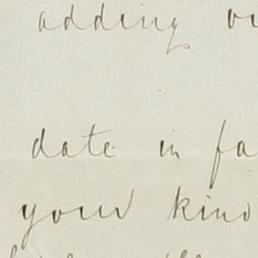 adding
date in fa
your kind